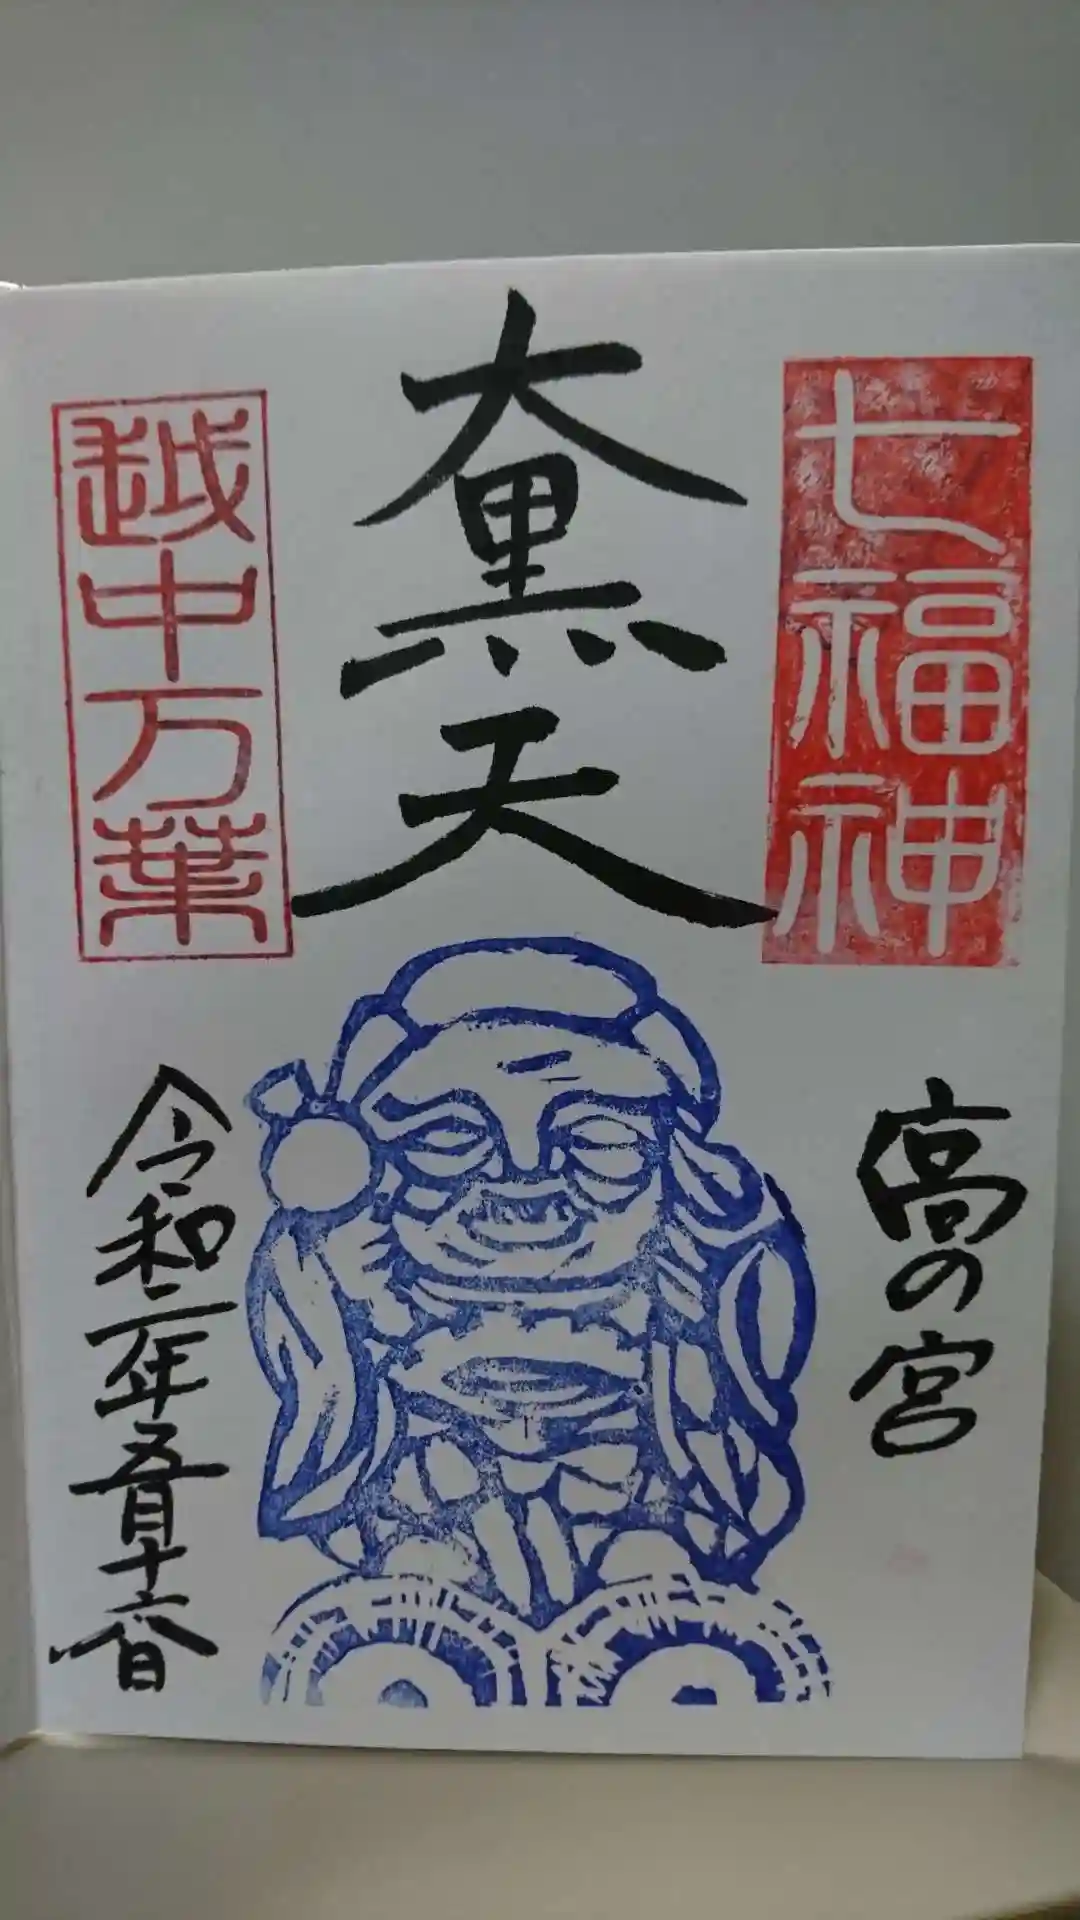 七福神
大黒天
越中万葉
高の宮
令和二年五月十六日